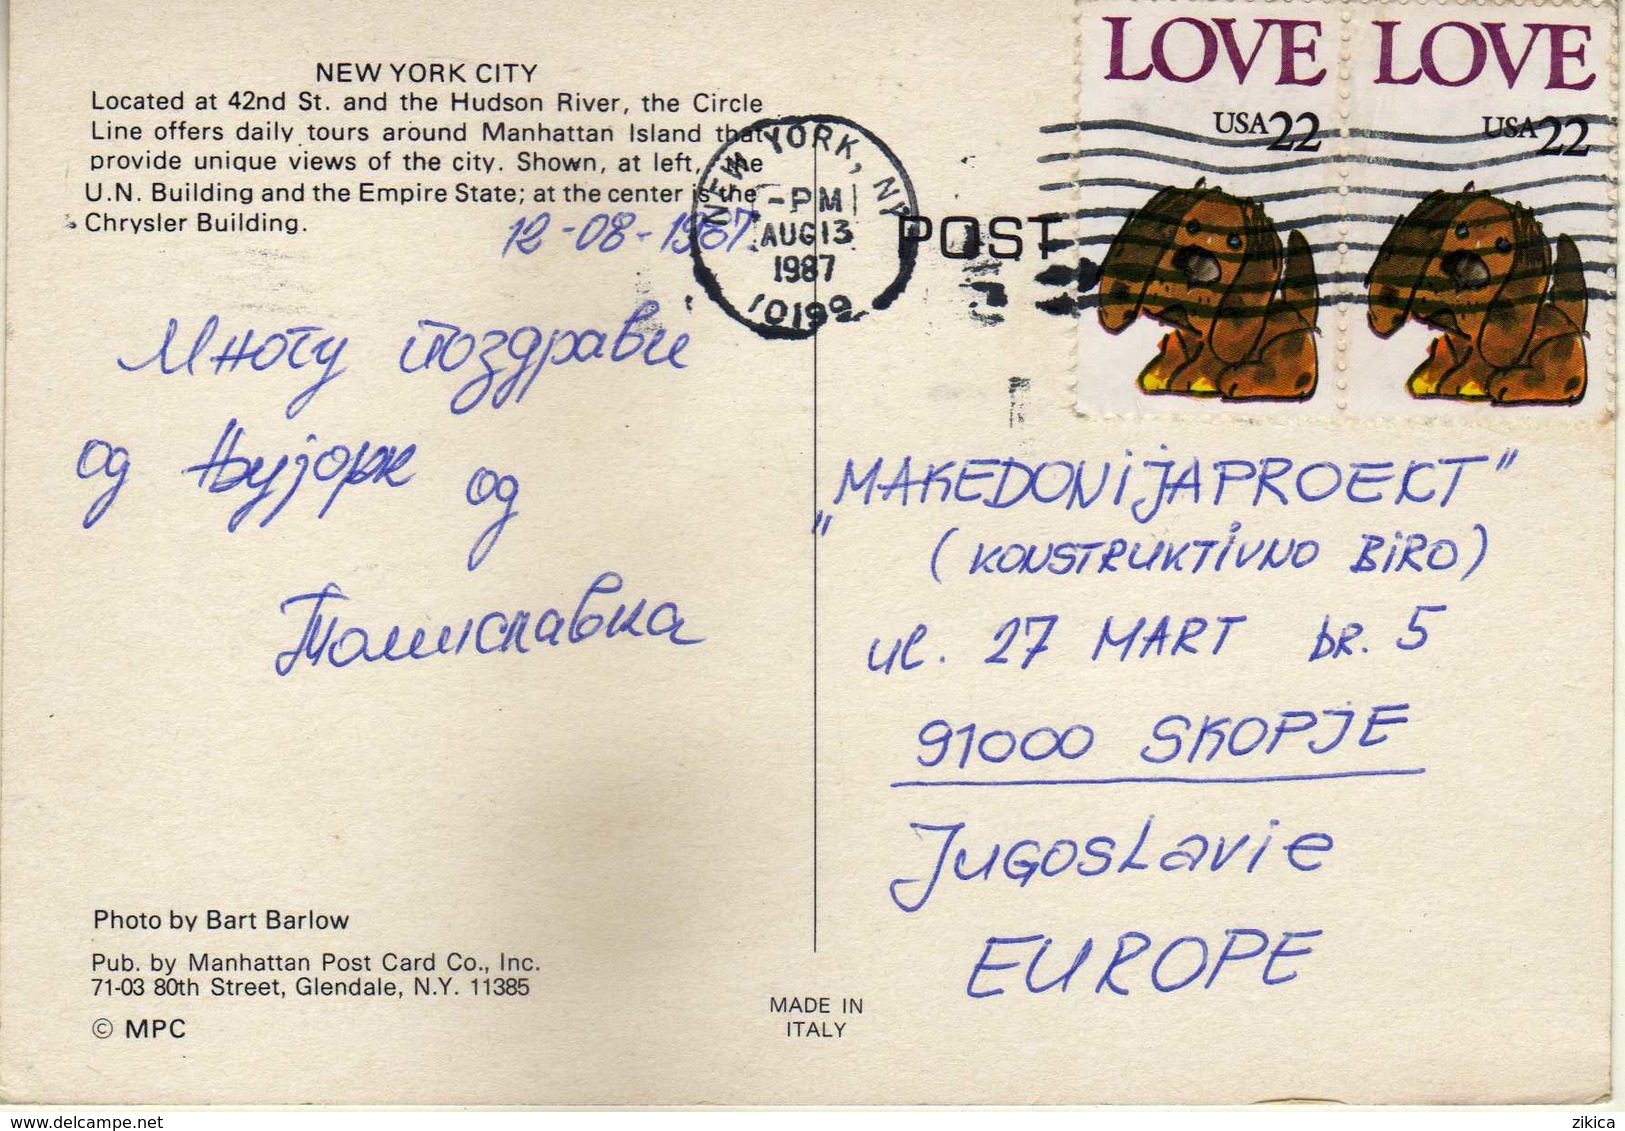 NEW YORK CITY
Located at 42nd St. and the Hudson River, the Circle
Line offers daily tours around Manhattan Island that
provide unique views of the city. Shown, at left, the
U.N. Building and the Empire State; at the center is the
Chrysler Building.
12-08-1987
Многу поздрави
од Њујорк од
Томиславка
Photo by Bart Barlow
Pub. by Manhattan Post Card Co., Inc.
71-03 80th Street, Glendale, N.Y. 11385
© MPC
MADE IN
ITALY
NEW YORK, NY
-PM
AUG 13
1987
10199
POST
LOVE
USA22
LOVE
USA22
"MAKEDONIJAPROEKT"
(KONSTRUKTIVNO BIRO)
ul. 27 MART br. 5
91000 SKOPJE
Jugoslavie
EUROPE
www.delcampe.net
zikica